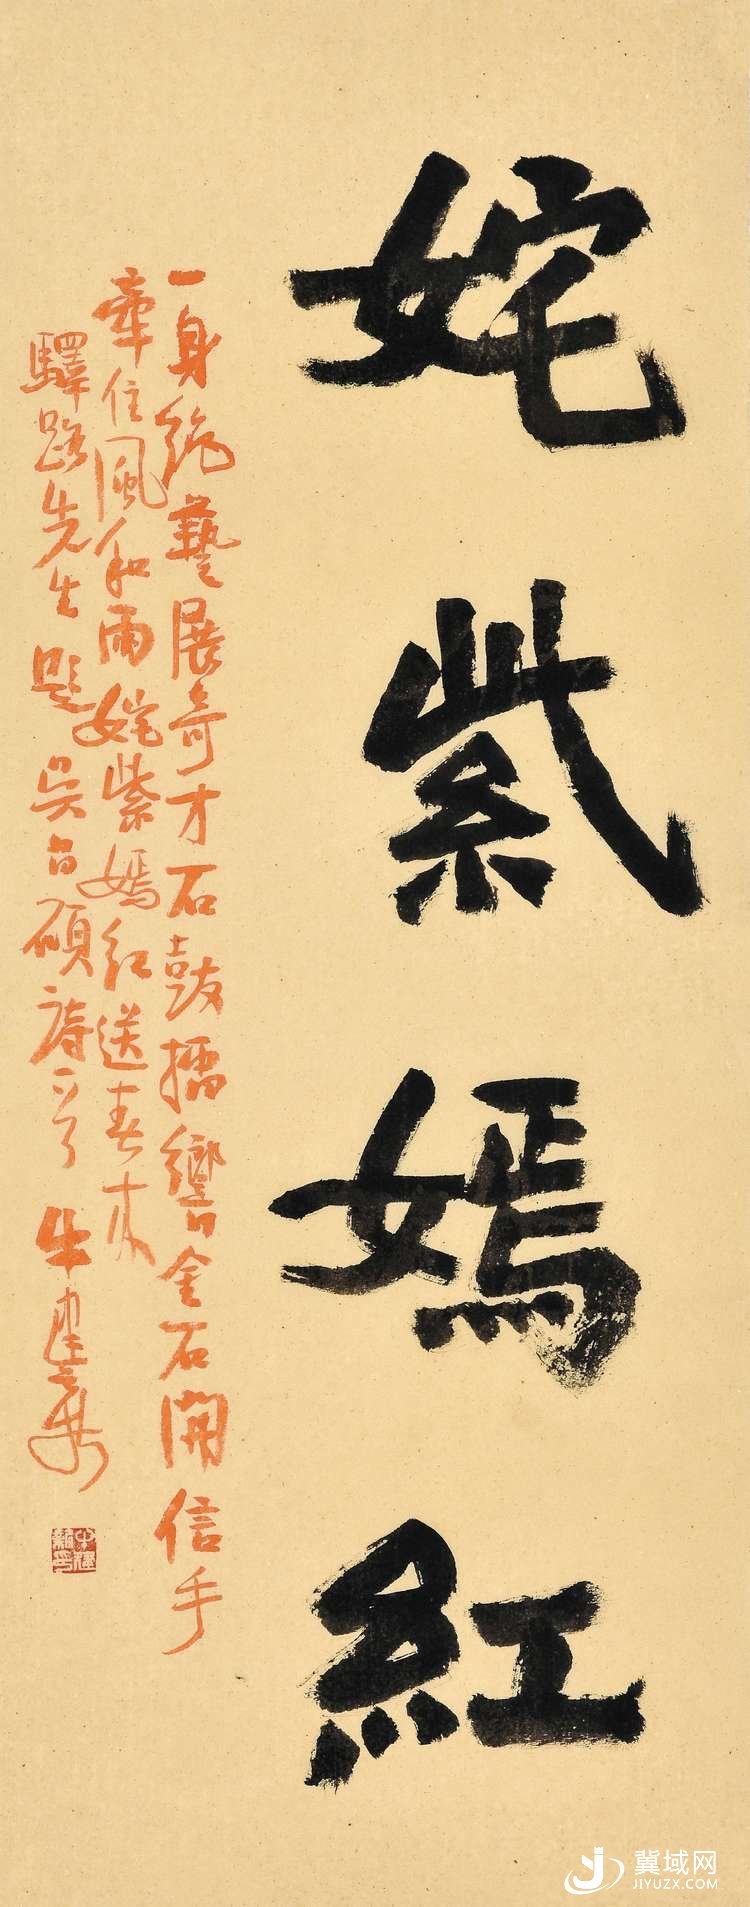 姹紫嫣红
一身絶藝展奇才石鼓擂響金石開信手
牽住風和雨姹紫嫣红送春来
驛路先生題吳昌碩詩一首
冀域网
JIYUZX.COM